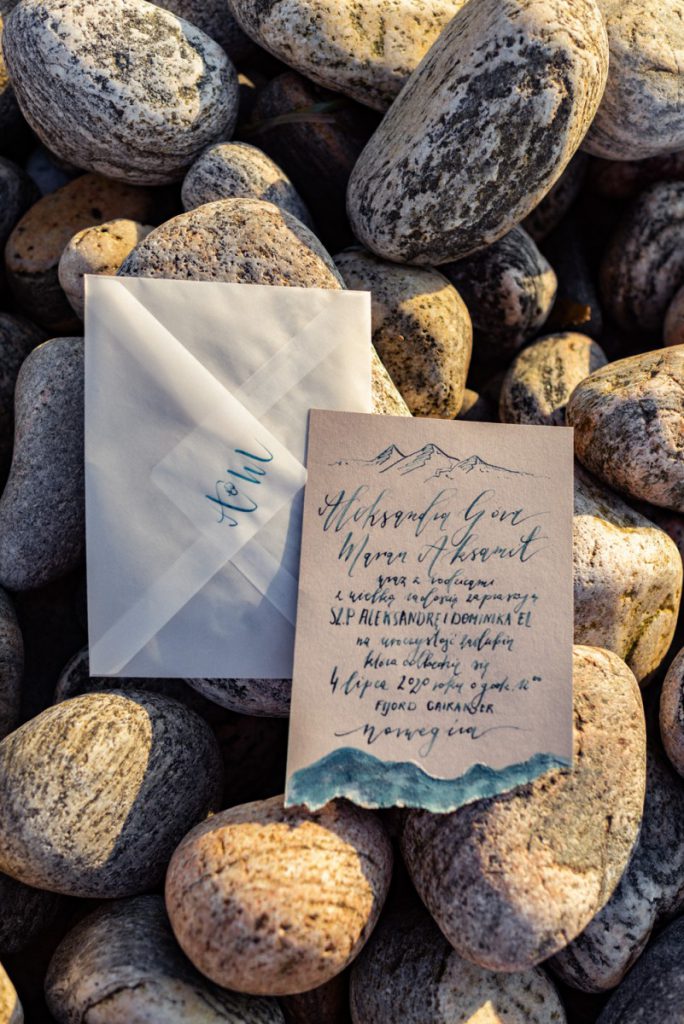 A&M
Aleksandra Góra
Maran Aksamit
wraz z rodzicami
z wielką radością zapraszają
SZ.P ALEKSANDRĘ I DOMINIKA EL
na uroczystość zaślubin
która odbędzie się
4 lipca 2020 roku o godz. 16⁰⁰
FIJORD GAIRANGER
Norwegia